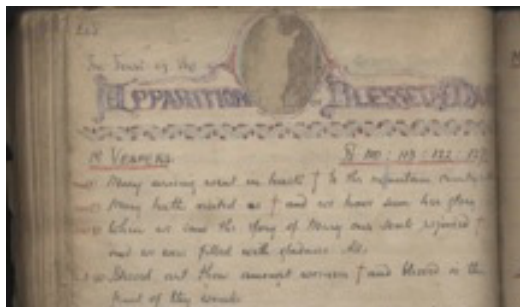 The Feast of the
APPARITION BLESSED
VESPERS. 122
Mary arising went in haste † to the mountain
Mary hath visited us † and we have seen her glory
When we saw the glory of Mary our souls rejoiced †
and we were filled with gladness. All.
Blessed art thou amongst women † and blessed is the
fruit of thy womb.